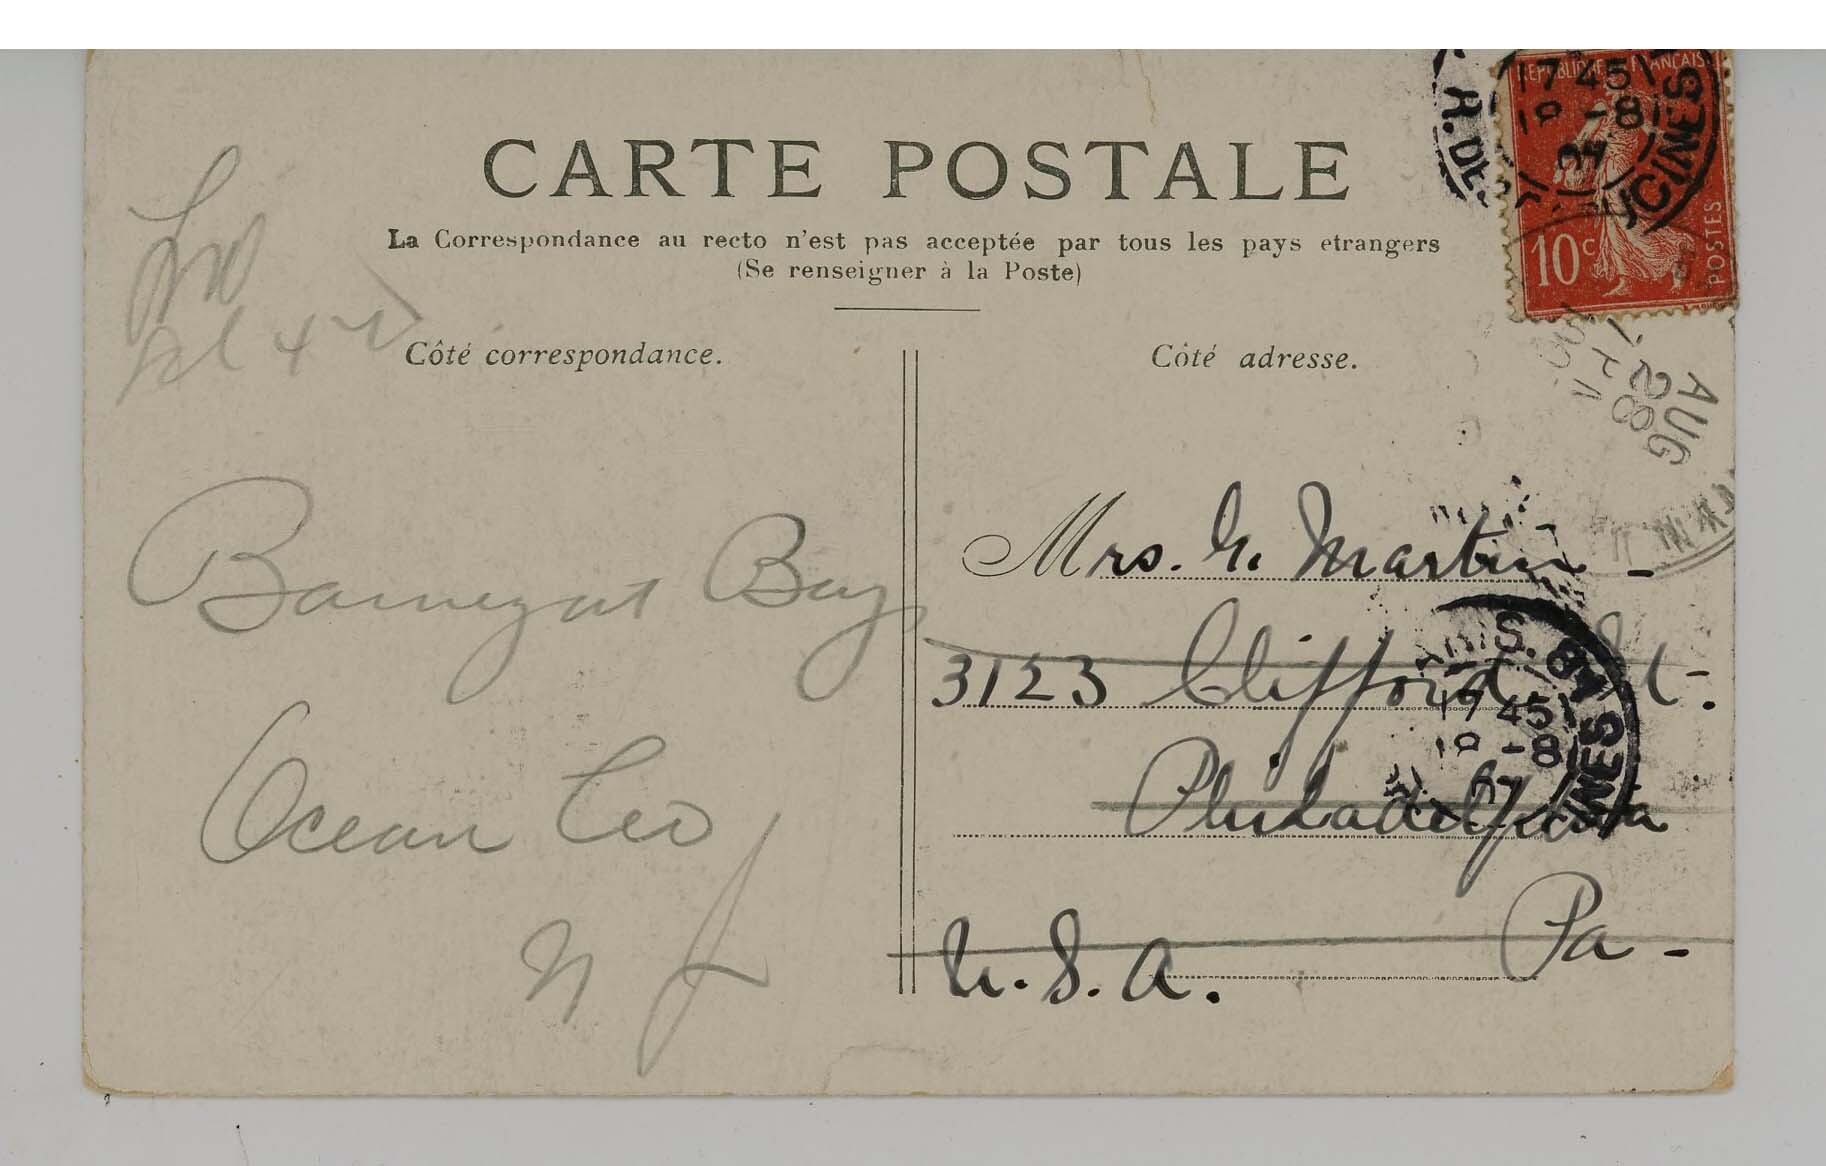 CARTE POSTALE
La Correspondance au recto n'est pas acceptée par tous les pays etrangers
(Se renseigner à la Poste)
Côté correspondance.
Côté adresse.
REPUBLIQUE FRANCAISE
17 45
-8
07
R. DE
UCINES
10c
POSTES
AUG
28
Barnegat Bay
Ocean Co
N J
Mrs. G. Martin -
3123 Clifford St.
Philadelphia
Pa -
U. S. A.
PARIS. 84
17 45
-8
07
INES